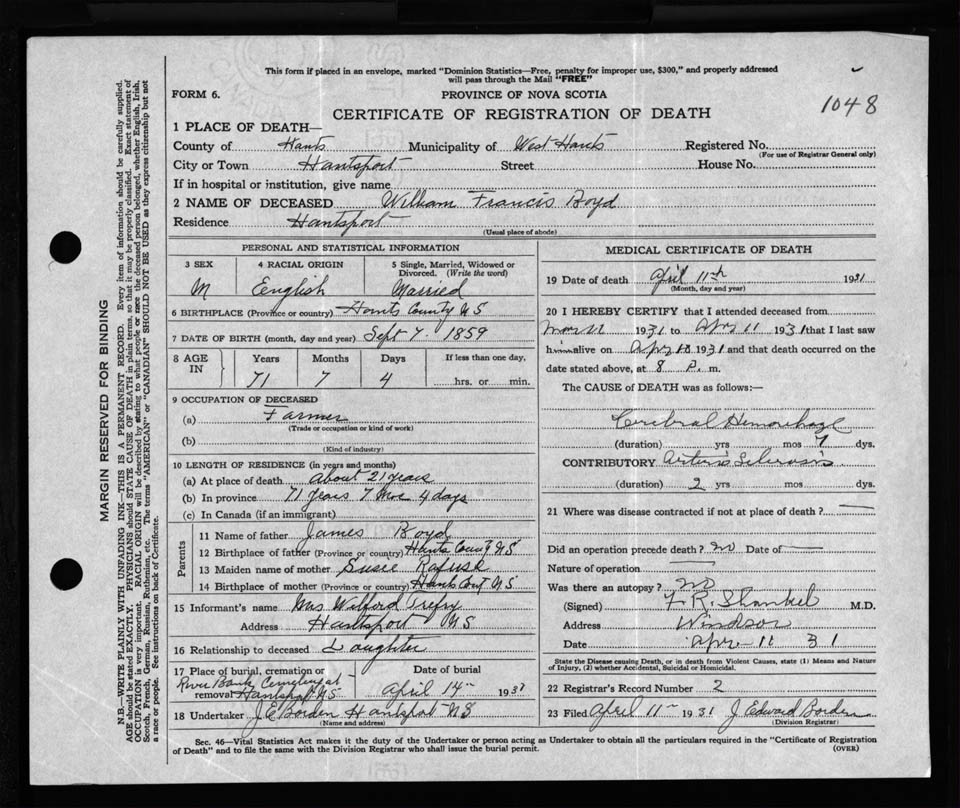 This form if placed in an envelope, marked "Dominion Statistics—Free, penalty for improper use, $300," and properly addressed
will pass through the Mail "FREE"
FORM 6.
PROVINCE OF NOVA SCOTIA
1048
CERTIFICATE OF REGISTRATION OF DEATH
1 PLACE OF DEATH—
County of Hants Municipality of West Hants Registered No.
(For use of Registrar General only)
City or Town Hantsport Street House No.
If in hospital or institution, give name
2 NAME OF DECEASED William Francis Boyd
Residence Hantsport
(Usual place of abode)
PERSONAL AND STATISTICAL INFORMATION
3 SEX 4 RACIAL ORIGIN 5 Single, Married, Widowed or
Divorced. (Write the word)
M English Married
6 BIRTHPLACE (Province or country) Hants County NS
7 DATE OF BIRTH (month, day and year) Sept 7. 1859
8 AGE IN Years Months Days If less than one day,
71 7 4 hrs. or min.
9 OCCUPATION OF DECEASED
(a) Farmer
(Trade or occupation or kind of work)
(b)
(Kind of industry)
10 LENGTH OF RESIDENCE (in years and months)
(a) At place of death About 21 years
(b) In province 71 years 7 Mos 4 days
(c) In Canada (if an immigrant)
Parents
11 Name of father James Boyd
12 Birthplace of father (Province or country) Hants County NS
13 Maiden name of mother Susie Rafuse
14 Birthplace of mother (Province or country) Hants Cont NS
15 Informant's name Mrs Wilford Trefry
Address Hantsport NS
16 Relationship to deceased Daughter
17 Place of burial, cremation or removal Date of burial
River Bank Cemetery at
Hantsport NS April 14th 1931
18 Undertaker J.E. Borden Hantsport NS
(Name and address)
MEDICAL CERTIFICATE OF DEATH
19 Date of death April 11th 1931
(Month, day and year)
20 I HEREBY CERTIFY that I attended deceased from
1931 to Apr 11 1931 that I last saw
him alive on Apr 10 1931 and that death occurred on the
date stated above, at 8 P. m.
The CAUSE of DEATH was as follows:—
Cerebral Hemorrhage
(duration) yrs mos 7 dys.
CONTRIBUTORY Arterio Sclerosis
(duration) 2 yrs mos dys.
21 Where was disease contracted if not at place of death?
Did an operation precede death? no Date of
Nature of operation
Was there an autopsy? no
(Signed) F. R. Shankel M.D.
Address Windsor
Date Apr 11 31
State the Disease causing Death, or in death from Violent Causes, state (1) Means and Nature
of Injury, (2) whether Accidental, Suicidal or Homicidal.
22 Registrar's Record Number 2
23 Filed April 11th 1931 J. Edward Borden
(Division Registrar)
Sec. 46—Vital Statistics Act makes it the duty of the Undertaker or person acting as Undertaker to obtain all the particulars required in the "Certificate of Registration
of Death" and to file the same with the Division Registrar who shall issue the burial permit.
(OVER)
MARGIN RESERVED FOR BINDING
N.B.—WRITE PLAINLY WITH UNFADING INK—THIS IS A PERMANENT RECORD. Every item of information should be carefully supplied.
AGE should be stated EXACTLY. PHYSICIANS should STATE CAUSE OF DEATH in plain terms, so that it may be properly classified. Exact statement of
OCCUPATION is very important. RACIAL ORIGIN will be described by stating to what people or race the deceased person belonged, whether English, Irish,
Scotch, French, German, Russian, Ruthenian, etc. The terms "AMERICAN" or "CANADIAN" SHOULD NOT BE USED as they express citizenship but not
a race or people. See instructions on back of Certificate.